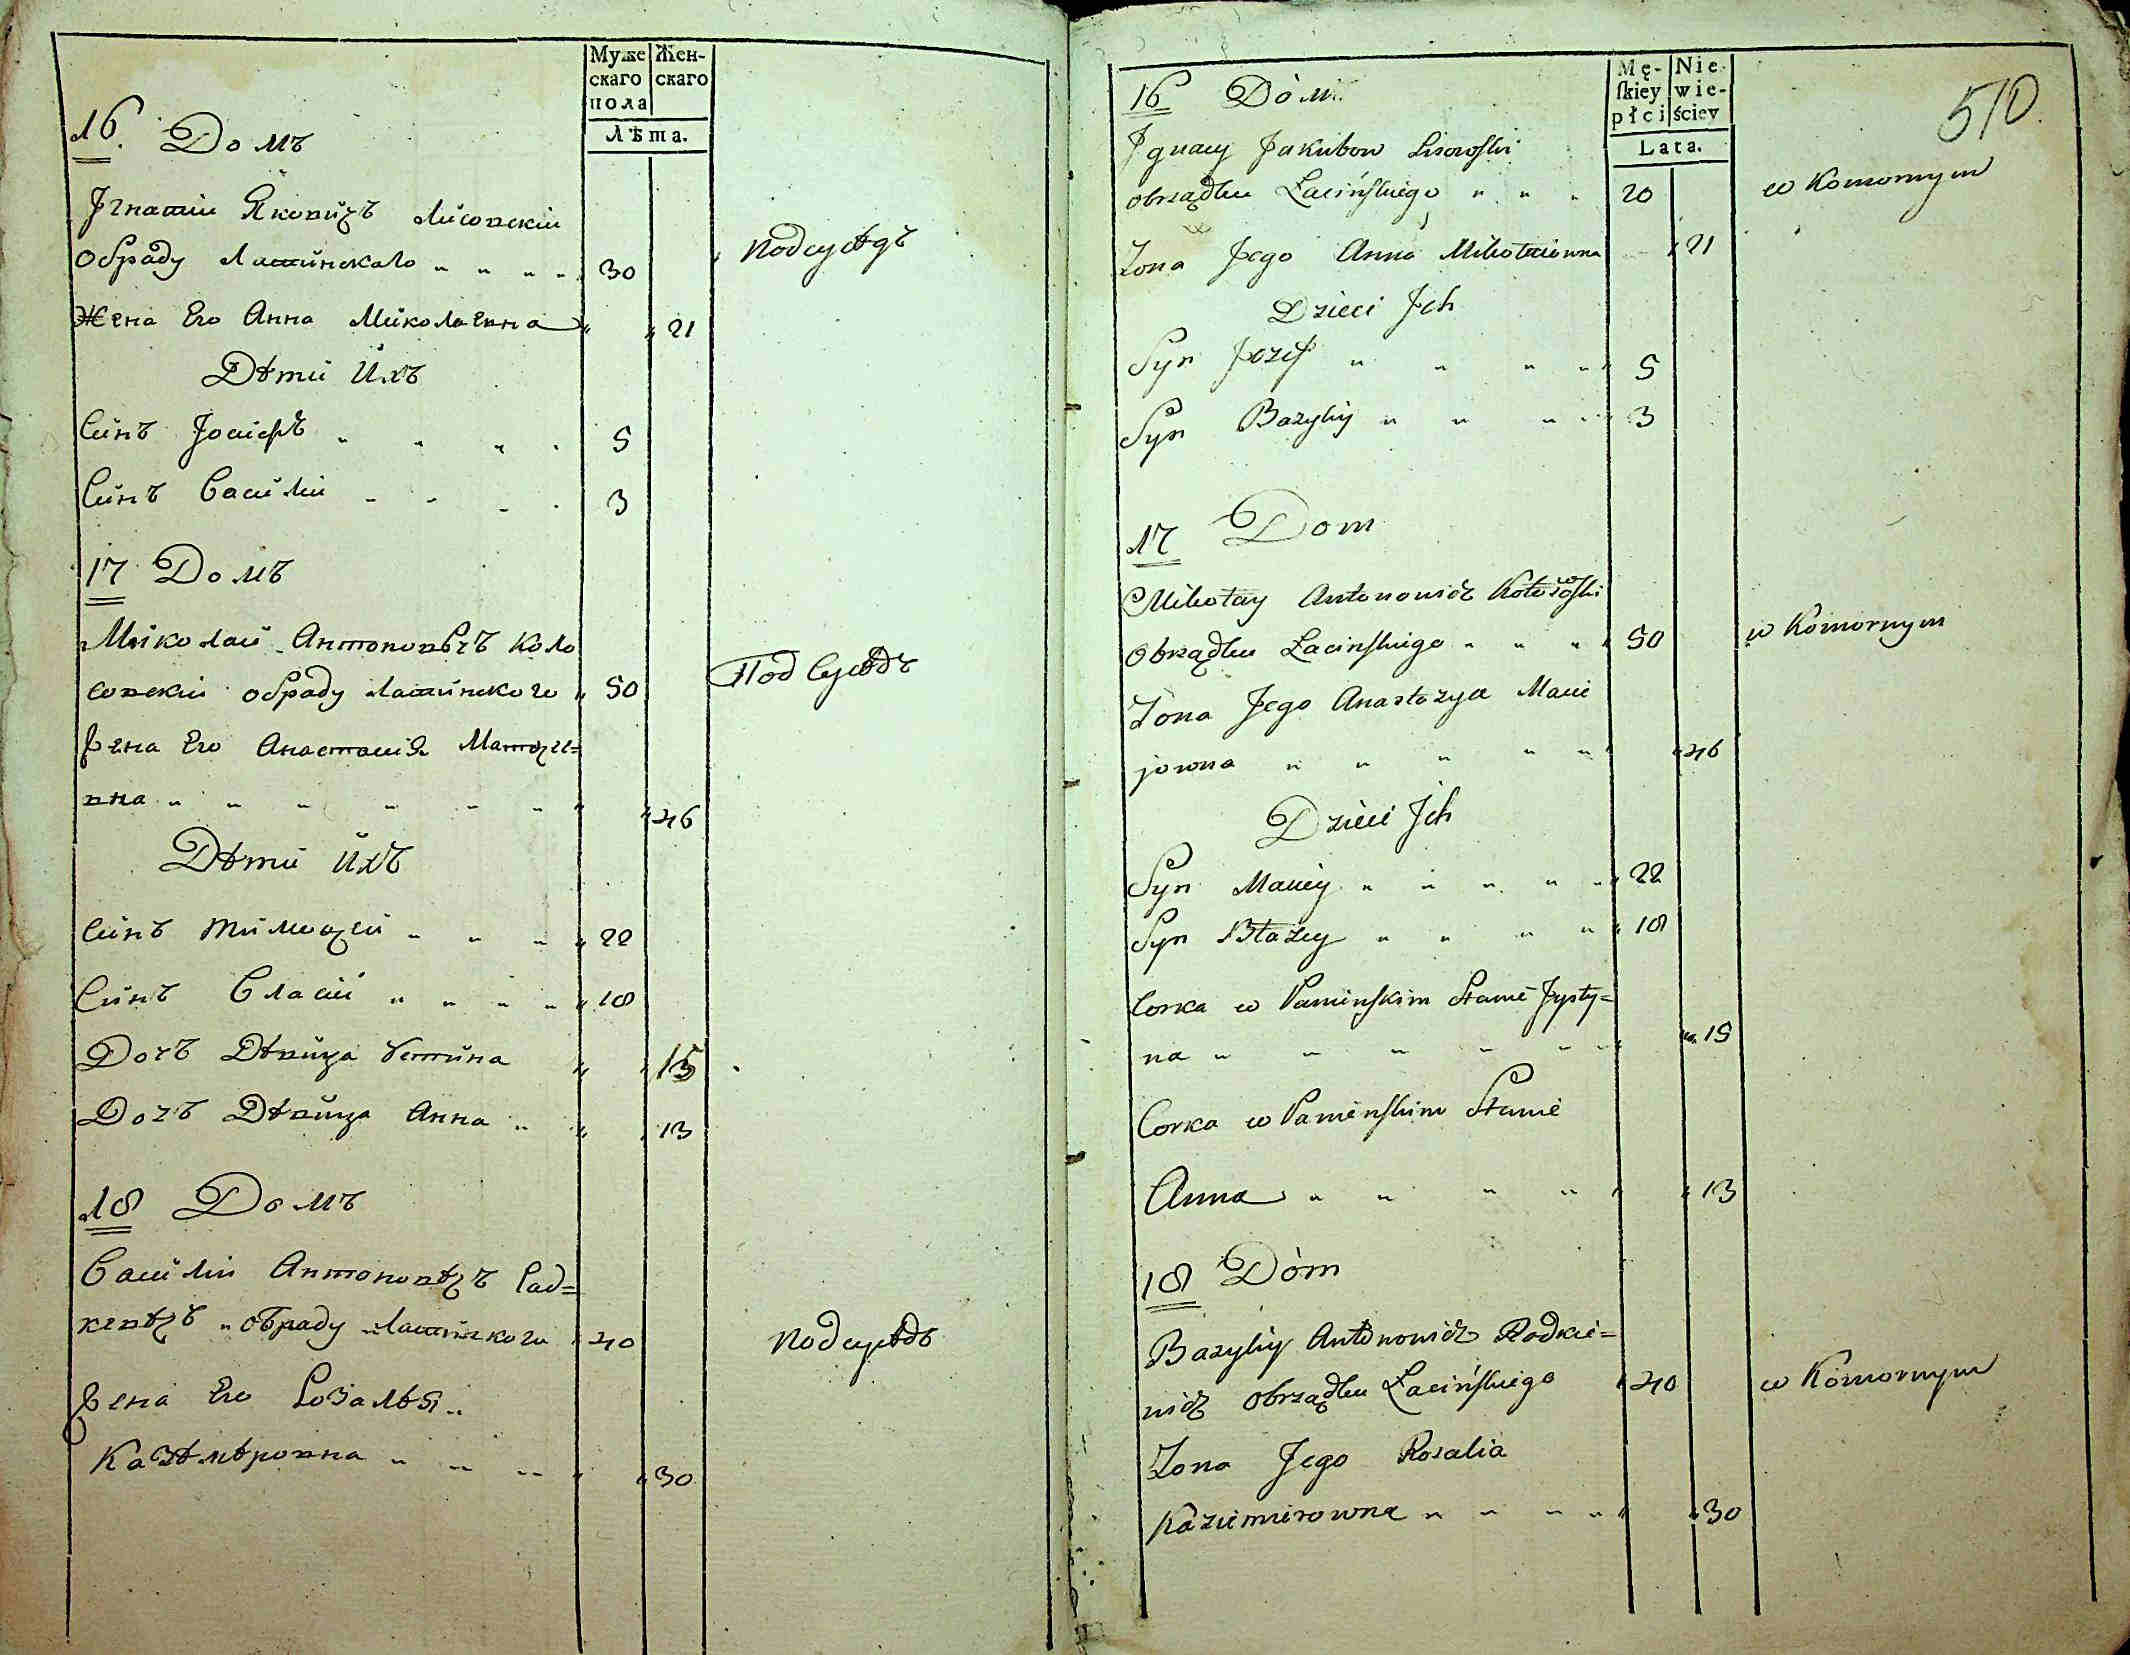 Муже Жен-
скаго скаго
пола
Лѣта.
16. Домъ
Игнатiи Яковичъ Лисовскiи
обраду Латинскаго " " " " 30 Подсусѣдъ
Жена Его Анна Миколаевна " " 21
Дѣти Ихъ
Синъ Iосифъ " " " " 5
Синъ Василiй " " " " 3
17 Домъ
Миколай Антоновѣчъ Коло
совскiи обраду латинского " 50 Подсусѣдъ
Жена Его Анастасiя Матфее=
вна " " " " " " " " 46
Дѣти Ихъ
Синъ Тимофей " " " " 22
Синъ Власiй " " " " " 18
Дочъ Дѣвица Устина " " 15
Дочъ Дѣвица Анна " " 13
18 Домъ
Василiй Антоновѣчъ Рад=
кевѣчъ обраду Латинского " 40 Подсусѣдъ
Жена Его Розалья "
Казѣмѣровна " " " " " 30
510
Mę- Nie
skiey wie-
płci ściey
Lata.
16 Dom
Jgnacy Jakubow Lisowski
obrządku Łacińskiego " " " 20 w Komornym
Żona Jego Anna Mikołaiowna " 21
Dzieci Jch
Syn Jozef " " " " 5
Syn Bazyli " " " " 3
17 Dom
Mikołay Antonowicz Kołosowski
Obrządku Łacinskiego " " " " 50 w Komornym
Żona Jego Anastazya Macie
jowna " " " " " " 46
Dzieci Jch
Syn Maciey " " " " " 22
Syn Błażey " " " " " 18
Corka w Panieńskim Stanie Justy=
na " " " " " " " 15
Corka w Panieńskim Stanie
Anna " " " " " " 13
18 Dom
Bazyli Antonowicz Radkie=
wicz Obrządku Łacińskiego " 40 w Komornym
Żona Jego Rozalia
Kazimierowna " " " " " " 30